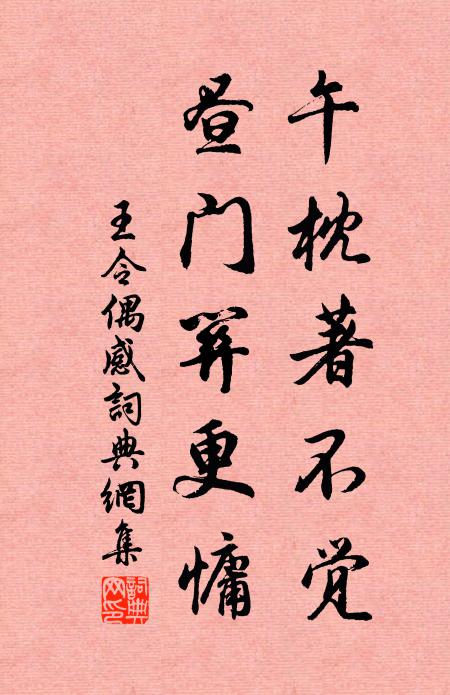 午枕著不觉
昼门开更慵
王令偶感詞典網集
詞典网印